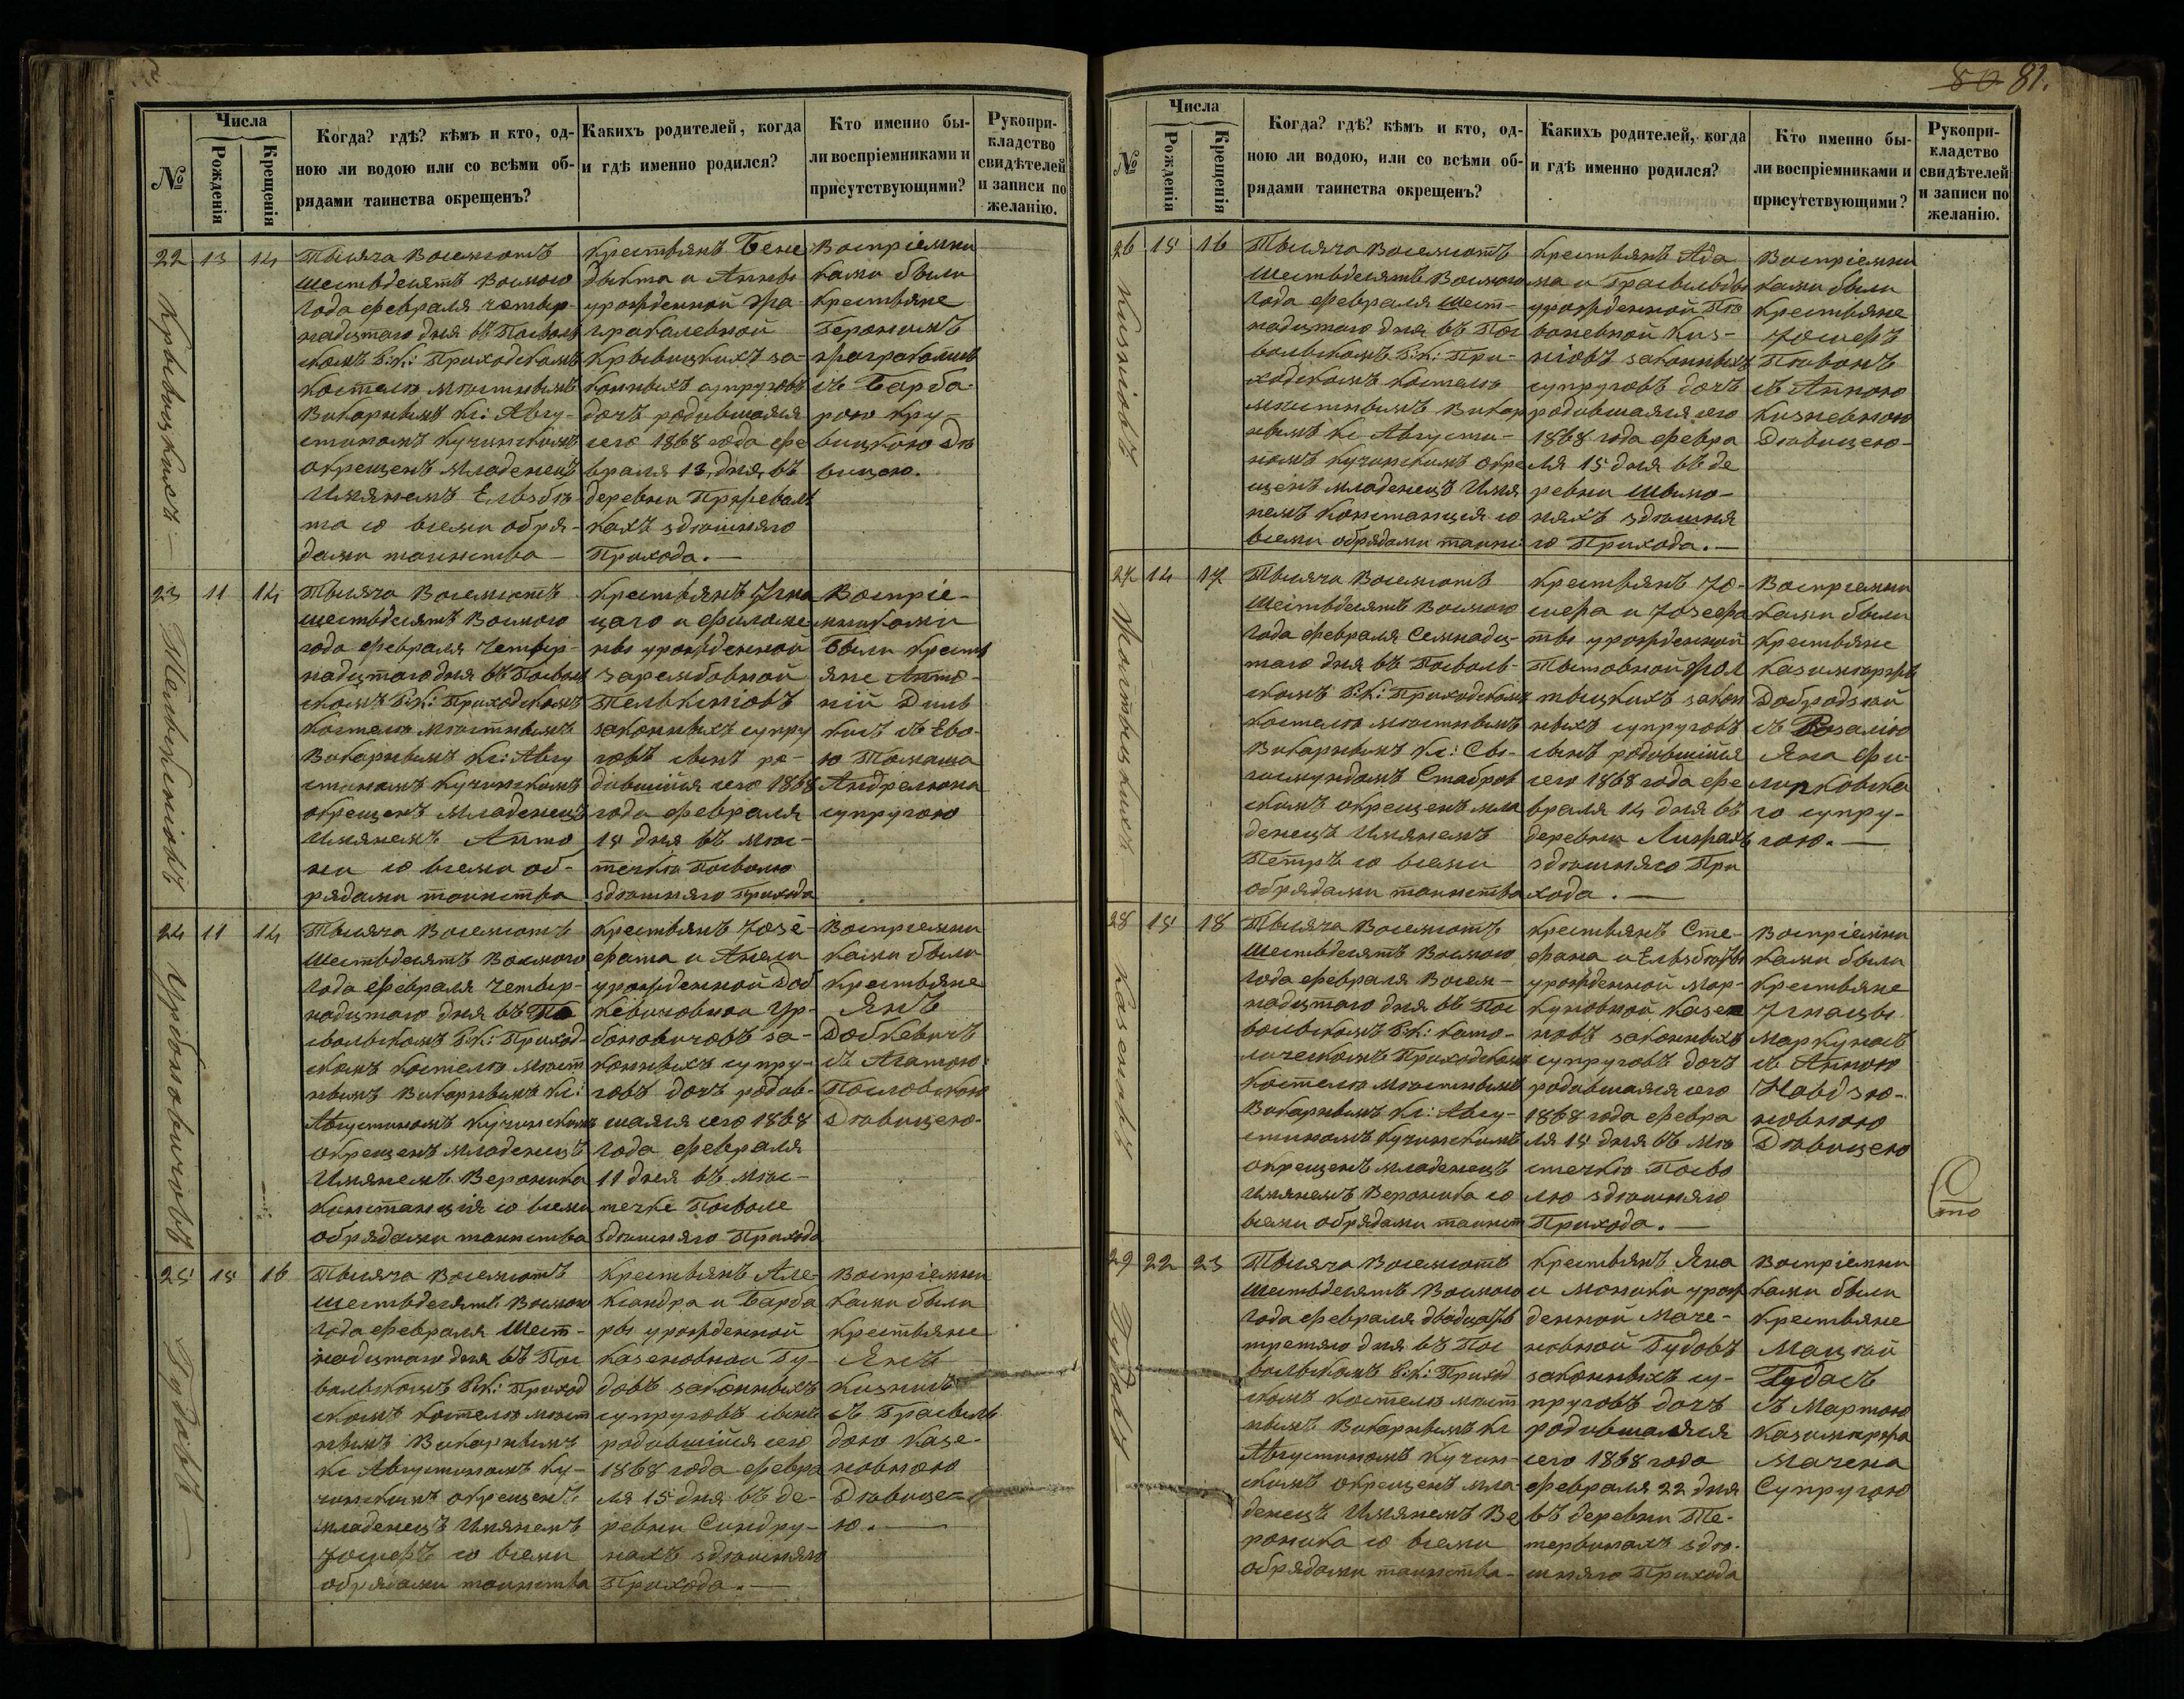 80 81.
№
Числа
Рожденія
Крещенія
Когда? гдѣ? кѣмъ и кто, од-
ною ли водою или со всѣми об-
рядами таинства окрещенъ?
Какихъ родителей, когда
и гдѣ именно родился?
Кто именно бы-
ли воспріемниками и
присутствующими?
Рукопри-
кладство
свидѣтелей
и записи по
желанію.
22 13 14
Крывицкихъ
Тысяча восемсотъ
шестьдесятъ восмого
года февраля четыр-
надцатаго дня въ Посволь
скомъ Р.К: Приходскомъ
костелѣ мѣстнымъ
Викарнымъ Кс: Авгу-
стиномъ Кучинскимъ
окрещенъ младенецъ
Имянемъ Ельзбѣ
та со всеми обря-
дами таинства
Крестьянъ Бене
дыкта и Анны
урожденной
Крывицкихъ за-
конныхъ супруговъ
дочь родившаяся
сего 1868 года фе
враля 13 дня въ
деревни
кахъ здѣшняго
Прихода.
Воспріемни
ками были
Крестьяне
Геронимъ
съ Барба-
рою Кры-
вицкою дѣ
вицею.
23 11 14
Телькснiовъ
Тысяча восемсотъ
шестьдесятъ восмого
года февраля четыр-
надцатаго дня въ Посволь
скомъ Р.К: Приходскомъ
костелѣ мѣстнымъ
Викарнымъ Кс: Авгу
стиномъ Кучинскимъ
окрещенъ младенецъ
Имянемъ Анто
ни со всеми об-
рядами таинства
Крестьянъ Игна
цаго и Филоме
ны урожденной
Зарембовной
Телькснiовъ
законныхъ супру
говъ сынъ ро-
дившийся сего 1868
года февраля
11 дня въ мѣс-
течкѣ Посволю
здѣшняго Прихода
Воспріе-
мниками
были Кресть
яне Анто-
ній
съ Ево-
ю Томаша
Андрелюна
супругою
24 11 14
Урбоновичовъ
Тысяча восемсотъ
шестьдесятъ восмого
года февраля четыр-
надцатаго дня въ По
свольскомъ Р.К: Приход-
скомъ костелѣ мѣст
нымъ Викарнымъ Кс:
Августиномъ Кучинскимъ
окрещенъ младенецъ
Имянемъ Вероника
Констанція со всеми
обрядами таинства
Крестьянъ Юзе-
фата и Анели
урожденной Доб
кевичовной Ур-
боновичовъ за-
конныхъ супру-
говъ дочь родив-
шаяся сего 1868
года февраля
11 дня въ мѣс-
течке Посволе
здѣшняго Прихода
Воспріемни
ками были
Крестьяне
Янъ
Добкевичъ
съ Агатою
Пословскою
дѣвицею.
25 15 16
Гудовъ
Тысяча восемсотъ
шестьдесятъ восмого
года февраля шест-
надцатаго дня въ Пос
вольскомъ Р.К: Приход
скомъ костелѣ мѣст
нымъ Викарнымъ
Кс Августиномъ Ку-
чинскимъ окрещенъ
младенецъ Имянемъ
Юсифъ со всеми
обрядами таинства
Крестьянъ Але-
ксандра и Барба
ры урожденной
Казеновной Гу-
довъ законныхъ
супруговъ сынъ
родившійся сего
1868 года февра
ля 15 дня въ де-
ревни Синдру-
нахъ здѣшняго
Прихода.
Воспріемни
ками были
Крестьяне
Янъ
Кизнисъ
съ Грасиль
дою Казе-
новною
Дѣвице-
ю.
№
Числа
Рожденія
Крещенія
Когда? гдѣ? кѣмъ и кто, од-
ною ли водою, или со всѣми об-
рядами таинства окрещенъ?
Какихъ родителей, когда
и гдѣ именно родился?
Кто именно бы-
ли воспріемниками и
присутствующими?
Рукопри-
кладство
свидѣтелей
и записи по
желанію.
26 15 16
Кизнiовъ
Тысяча восемсотъ
шестьдесятъ восмого
года февраля шест-
надцатаго дня въ Пос
вольскомъ Р.К: При-
ходскомъ костелѣ
мѣстнымъ Викар
нымъ Кс Августи-
номъ Кучинскимъ окре
щенъ младенецъ Имя
немъ Констанція со
всеми обрядами таин
Крестьянъ Ада
ма и Грасильды
урожденной Пѣ
воневной Киз-
нiовъ законныхъ
супруговъ дочь
родившаяся сего
1868 года февра
ля 15 дня въ де
ревни Шимо-
няхъ здѣшня
го Прихода.
Воспріемни
ками были
Крестьяне
Юсифъ
Пивонъ
съ Анною
Кизневною
Дѣвицею
27 14 17
Тысяча восемсотъ
шестьдесятъ восмого
года февраля семнадц-
таго дня въ Посволь-
скомъ Р.К: Приходскомъ
костелѣ мѣстнымъ
Викарнымъ Кс: Сы-
гисмундомъ Стабров
скимъ окрещенъ мла
денецъ Имянемъ
Петръ со всеми
обрядами таинства
Крестьянъ Ю-
сифа и Юзефа
ты урожденной
законныхъ супруговъ
сынъ родившійся
сего 1868 года фе
враля 14 дня въ
деревни
здѣшняго При
хода.
Воспріемни
ками были
Крестьяне
Казимержъ
съ Розалію
Яна
го супру-
гою.
28 15 18
Казеновъ
Тысяча восемсотъ
шестьдесятъ восмого
года февраля восем-
надцатаго дня въ Пос
вольскомъ Р.К: Като-
лическомъ Приходскомъ
костелѣ мѣстнымъ
Викарнымъ Кс: Авгу-
стиномъ Кучинскимъ
окрещенъ младенецъ
Имянемъ Вероника со
всеми обрядами таинст
Крестьянъ Сте-
фана и Ельзбѣты
урожденной Мар-
куновной Казе
новъ законныхъ
супруговъ дочь
родившаяся сего
1868 года февра
ля 15 дня въ мѣ
стечкѣ Посво
лю здѣшняго
Прихода.
Воспріемни
ками были
Крестьяне
Игнацы
Маркунасъ
съ Анною
Навдзю-
новною
Дѣвицею
29 22 23
Гудовъ
Тысяча восемсотъ
шестьдесятъ восмого
года февраля двадцать
третяго дня въ Пос
вольскомъ Р.К: Приход
скомъ костелѣ мѣст
нымъ Викарнымъ Кс
Августиномъ Кучин-
скимъ окрещенъ мла-
денецъ Имянемъ Ве
роника со всеми
обрядами таинства
Крестьянъ Яна
и Моники урож
денной Маче-
новной Гудовъ
законныхъ су-
пруговъ дочь
родившаяся
сего 1868 года
февраля 22 дня
въ деревни Те-
тервинахъ здѣ-
шняго Прихода
Воспріемни
ками были
Крестьяне
Мацѣй
Гудасъ
съ Мартою
Казимержа
Мачена
Супругою